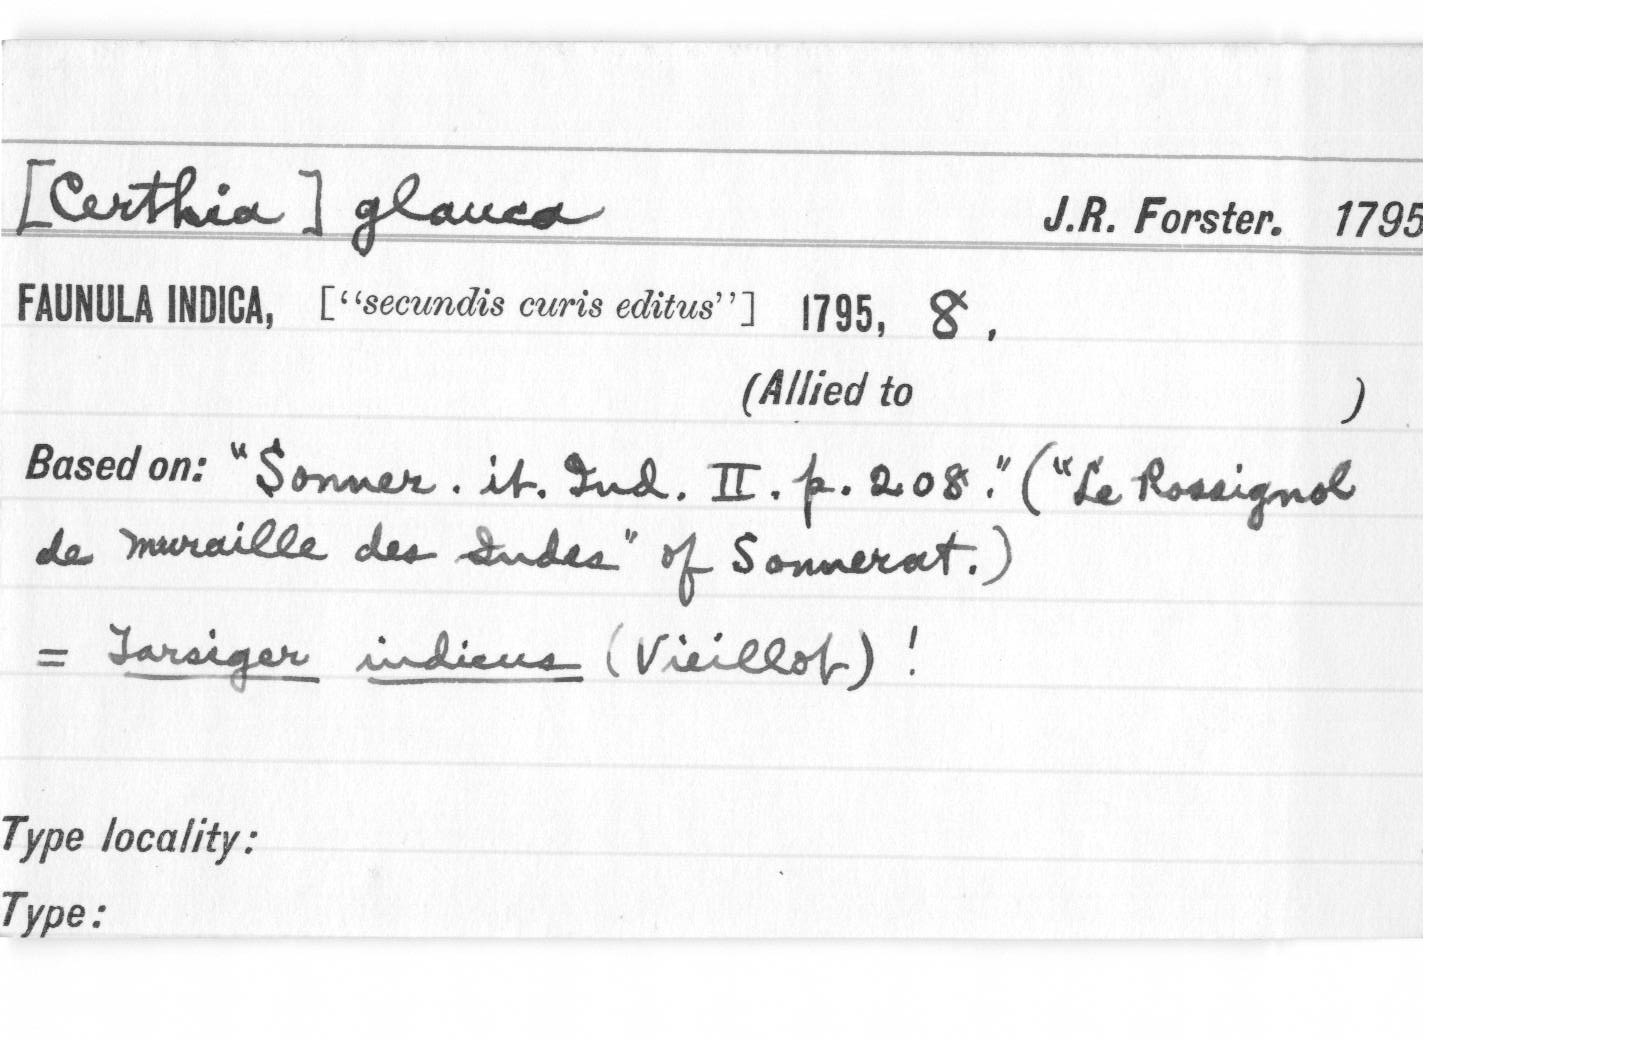 [Certhia] glauca J.R. Forster. 1795
FAUNULA INDICA, ["secundis curis editus"] 1795, 8,
(Allied to )
Based on: "Sonner. it. Ind. II. p. 208." ("Le Rossignol
de muraille des Indes" of Sonnerat.)
= Tarsiger indicus (Vieillot)!
Type locality:
Type: